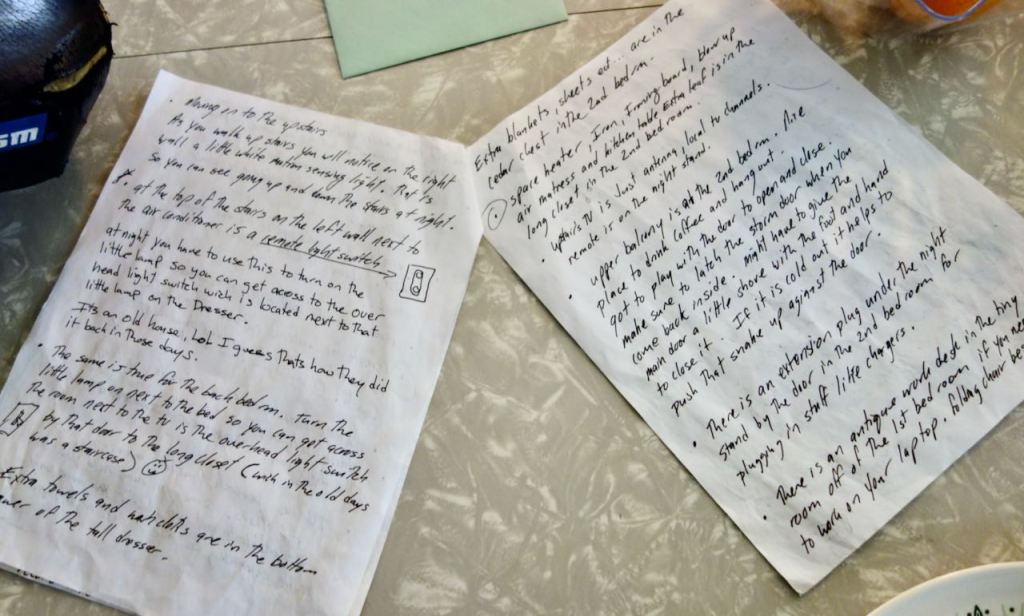 sm
• Moving on to the upstairs
As you walk up stairs you will notice on the right
wall a little white motion sensing light. That is
so you can see going up and down the stairs at night.
• at the top of the stairs on the left wall next to
the air conditioner is a remote light switch
at night you have to use this to turn on the
little lamp so you can get access to the over
head light switch wich is located next to that
little lamp on the Dresser.
Its an old house, Lol I guess thats how they did
it back in those days.
• The same is true for the back bedrm. Turn the
little lamp on next to the bed so you can get across
the room next to the TV is the overhead light switch
by that door to the long closet (wich in the old days
was a staircase)
Extra towels and are in the bottom
of the tall dresser.
Extra blankets, sheets ect... are in the
cedar closet in the 2nd bedrm.
• spare heater, Iron, Ironing board, blow up
air matress and kitchen table Extra leaf is in the
long closet in the 2nd bed room.
upstairs TV is Just antenna, local tv channels.
remote is on the night stand.
• upper balcony is at the 2nd bedrm. Nice
place to drink coffee and hang out.
got to play with the door to open and close.
make sure to latch the storm door when you
come back inside. Might have to give the
main door a little shove with the foot and hand
to close it. If it is cold out it helps to
push that snake up against the door.
• There is an extension plug under the night
stand by the door in the 2nd bed room for
plugging in stuff like chargers.
• There is an antique work desk in the tiny
room off of the 1st bed room if you need
to work on your lap top. folding chair